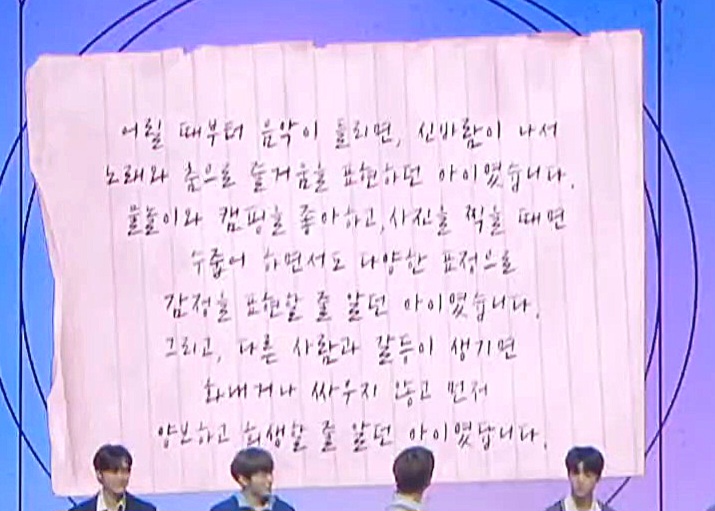 어릴 때부터 음악이 들리면, 신바람이 나서
노래와 춤으로 즐거움을 표현하던 아이였습니다.
물놀이와 캠핑을 좋아하고, 사진을 찍을 때면
수줍어 하면서도 다양한 표정으로
감정을 표현할 줄 알던 아이였습니다.
그리고, 다른 사람과 갈등이 생기면
화내거나 싸우지 않고 먼저
양보하고 희생할 줄 알던 아이였답니다.